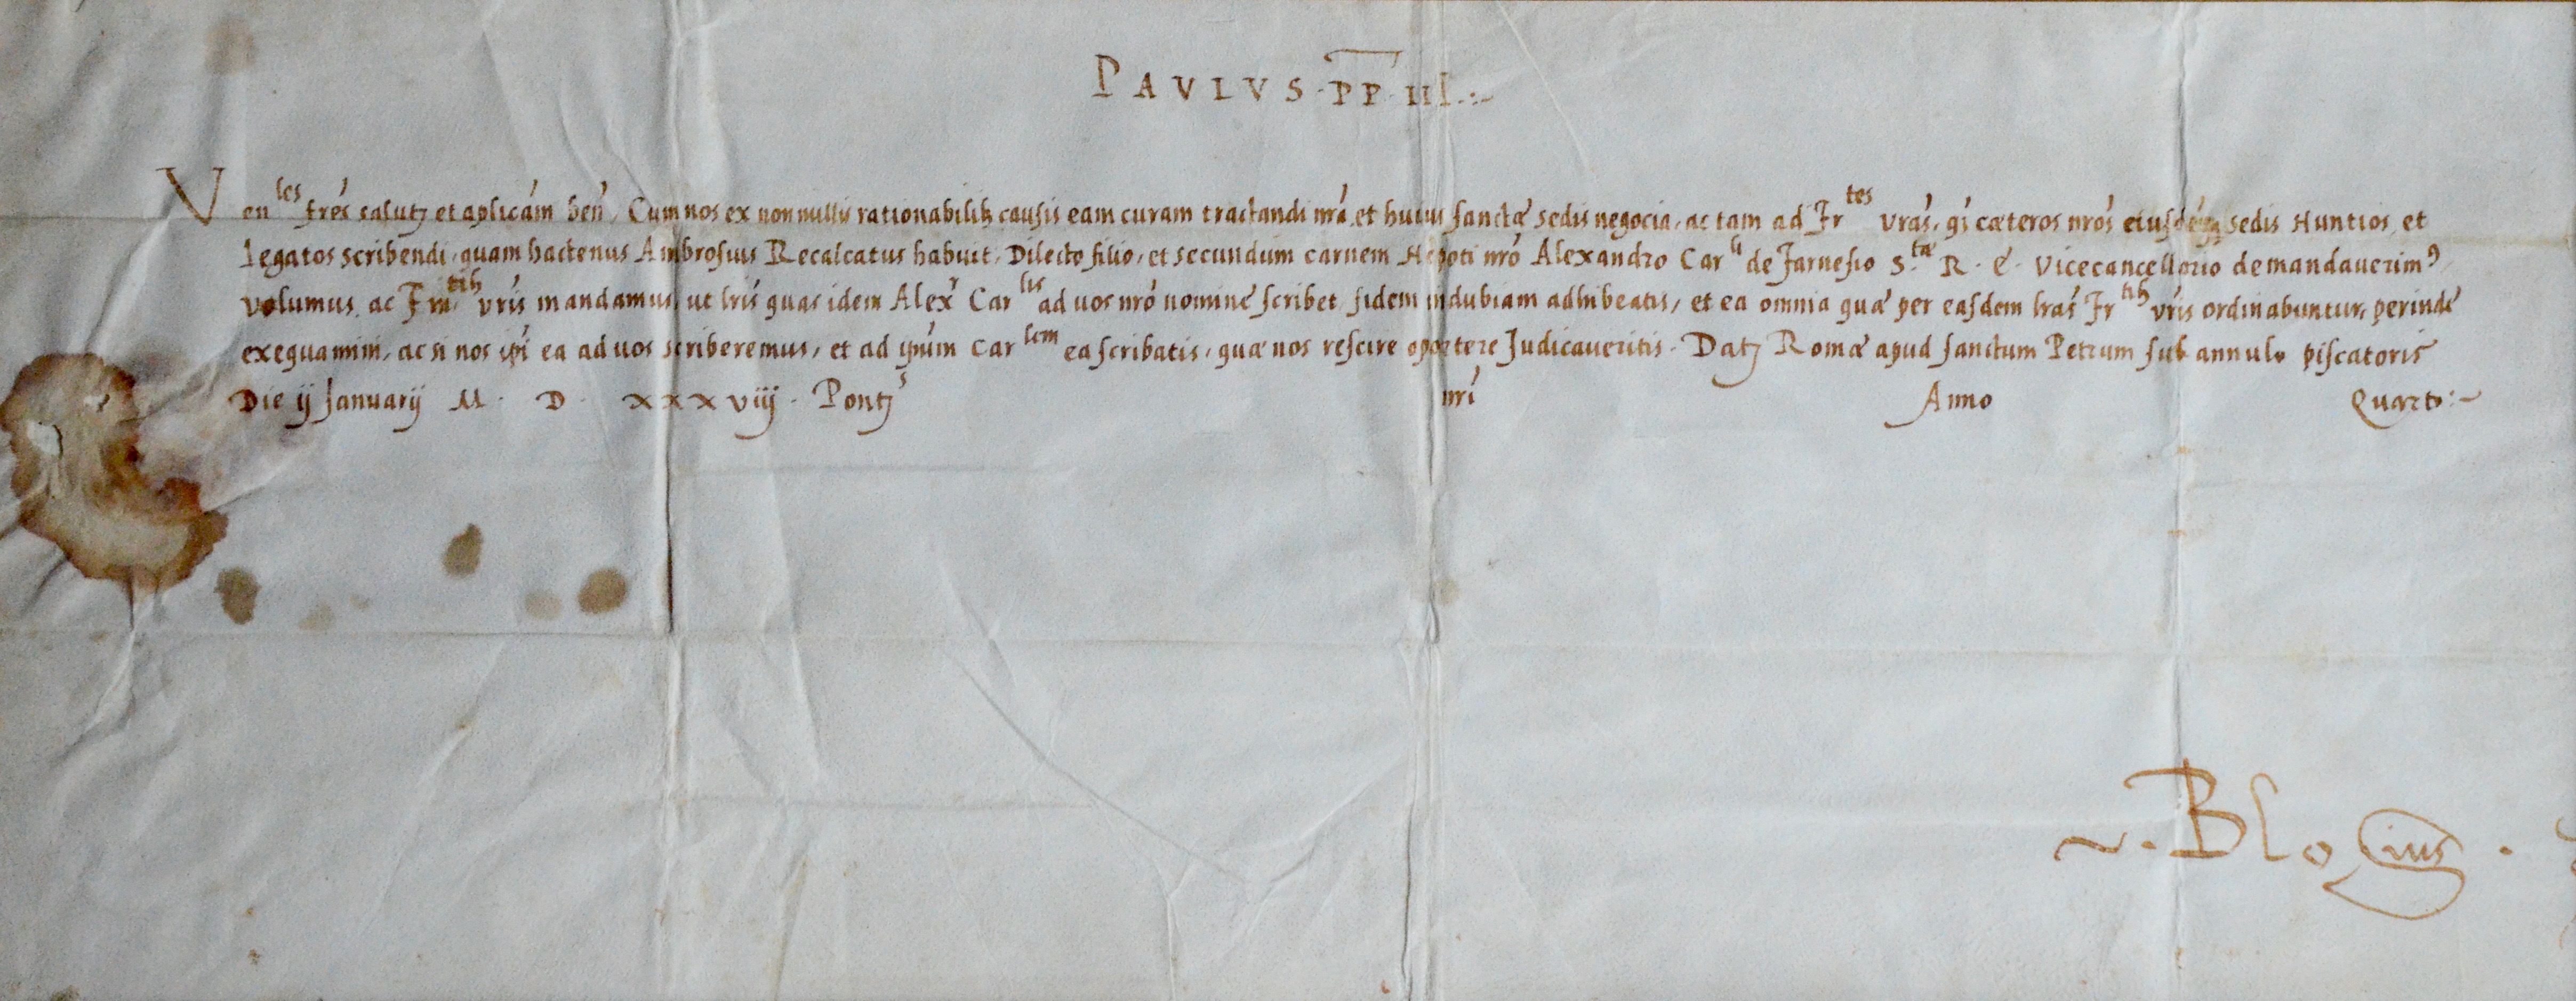 PAVLVS · PP · III ·:~
Ven^les fr̃es salutz et aplicãm beñ. Cum nos ex nonnullis rationabilib3 causis eam curam tractandi nr̃a et huius sanctæ sedis negocia, ac tam ad Fr^tes vrãs, q̃ cæteros nrõs eiusdem sedis Nuntios et
legatos scribendi, quam hactenus Ambrosius Recalcatus habuit, Dilecto filio, et secundum carnem Nepoti nrõ Alexandro Car^li de Farnesio S.^tæ R. E. Vicecancellario demandauerim9,
volumus ac Frat^ib3 vrĩs mandamus, ut lrĩs quas idem Alex^r Car^lis ad uos nrõ nomine scribet, fidem indubiam adhibeatis, et ea omnia quæ per easdem lrãs Fr^tib3 vrĩs ordinabuntur, perinde
exequamini, ac si nos ipĩ ea ad uos scriberemus, et ad ipũm Car^lem ea scribatis, quæ nos rescire oportere Judicaueritis. Datz Romæ apud sanctum Petrum sub annulo piscatoris
Die ij Januarij M · D · xxxviij · Pontz nrĩ Anno Quarto:~
~. Blosius .